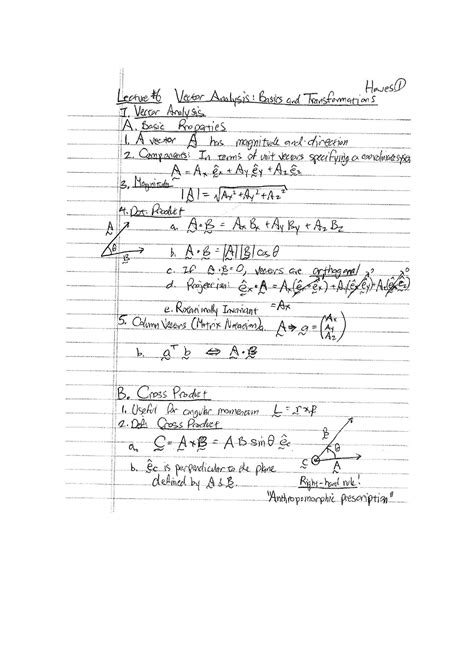 Hawes ①
Lecture #6 Vector Analysis: Basics and Transformations
I. Vector Analysis
A. Basic Properties
1. A vector A has magnitude and direction
2. Components: In terms of unit vectors specifying a coordinate sys
A = Ax êx + Ay êy + Az êz
3. Magnitude |A| = √(Ax² + Ay² + Az²)
4. Dot Product a. A • B = Ax Bx + Ay By + Az Bz
A θ B
b. A • B = |A||B| cos θ
c. If A • B = 0, vectors are orthogonal
d. Projection: êx • A = Ax(êx • êx) + Ay(êx • êy)⁰ + Az(êx • êz)⁰
= Ax
e. Rotationally Invariant
5. Column Vectors (Matrix Notation) a. A ⇒ a = (Ax Ay Az)
b. aᵀ b ⇔ A • B
B. Cross Product
1. Useful for angular momentum L = r × p
2. Def: Cross Product
a. C = A × B = A B sin θ êc
B θ C A
b. êc is perpendicular to the plane
defined by A & B.
Right-hand rule!
"Anthropomorphic prescription"